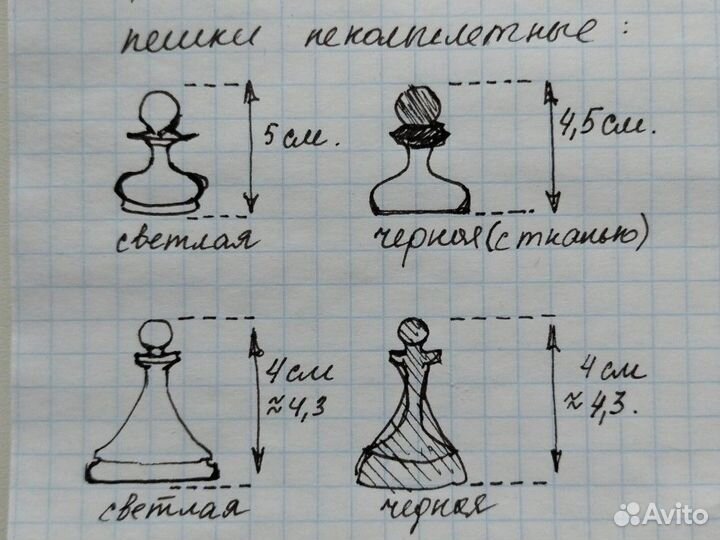 пешки некомплетные:
5 см.
4,5 см.
светлая
черная (с тканью)
4 см
≈4,3
4 см
≈4,3.
светлая
черная
Avito